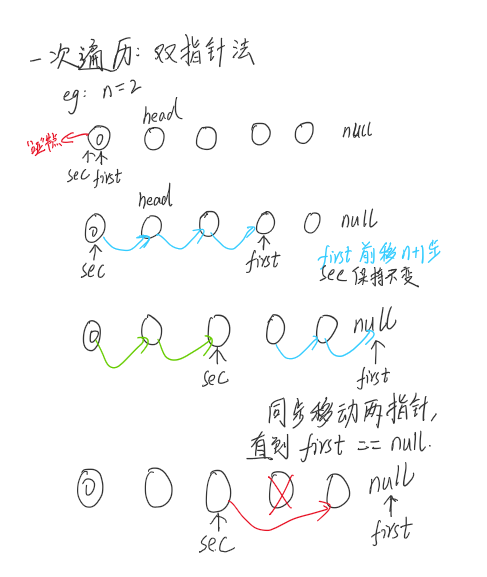 一次遍历：双指针法
eg: n=2
head
"哑"节点
0
null
sec first
head
0
null
sec
first
first 前移 n+1 步
sec 保持不变
0
null
sec
first
同步移动两指针,
直到 first == null.
0
null
sec
first